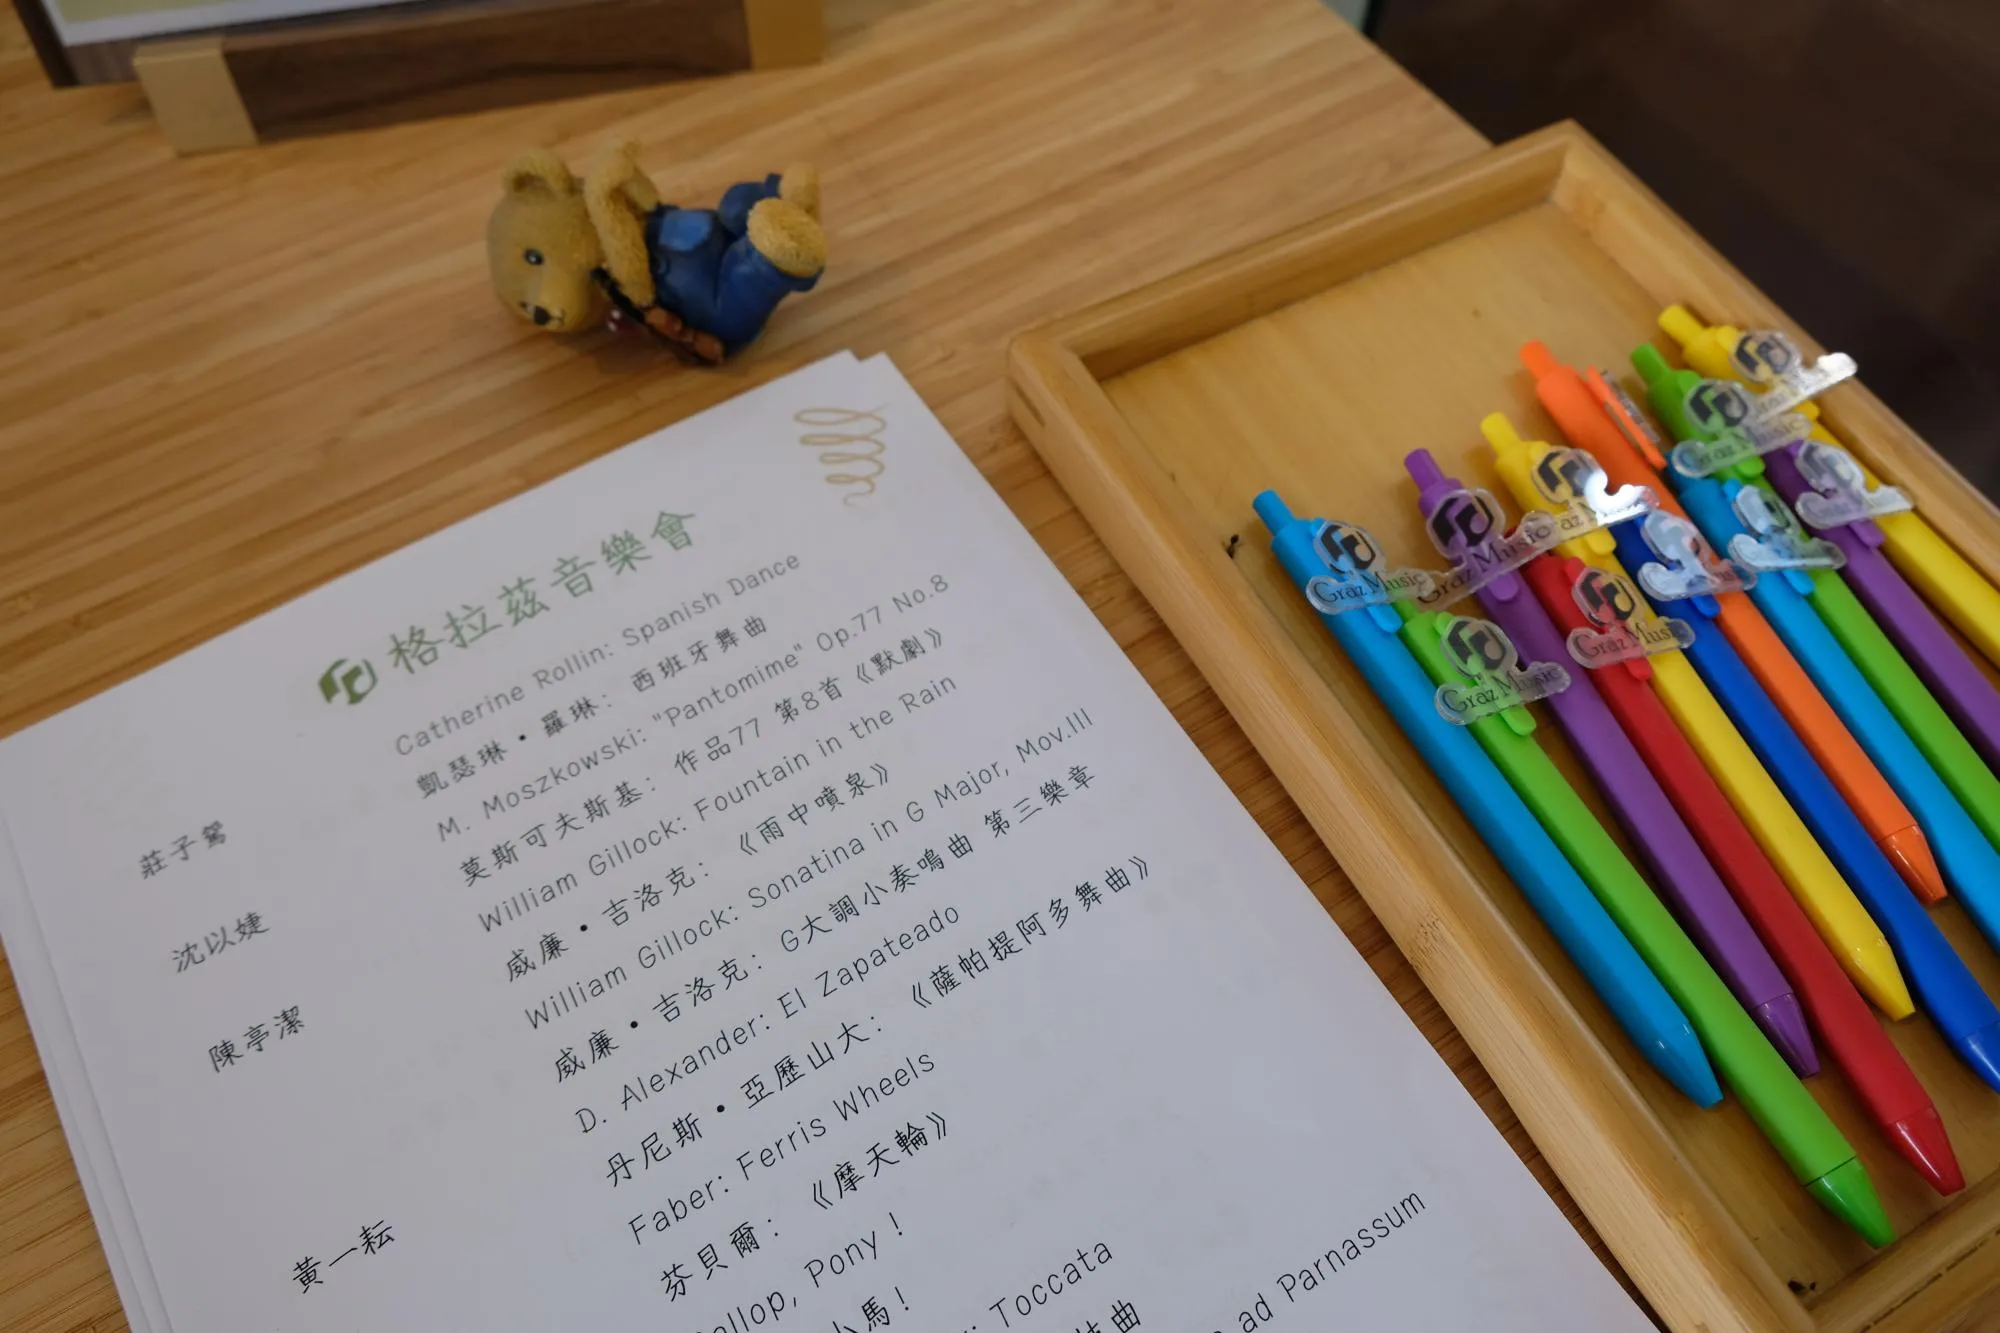 格拉茲音樂會
Catherine Rollin: Spanish Dance
莊子駕 凱瑟琳・羅琳：西班牙舞曲
M. Moszkowski: "Pantomime" Op.77 No.8
沈以婕 莫斯可夫斯基：作品77 第8首《默劇》
William Gillock: Fountain in the Rain
陳亭潔 威廉・吉洛克：《雨中噴泉》
William Gillock: Sonatina in G Major, Mov.III
威廉・吉洛克：G大調小奏鳴曲 第三樂章
D. Alexander: El Zapateado
丹尼斯・亞歷山大：《薩帕提阿多舞曲》
黃一耘 Faber: Ferris Wheels
芬貝爾：《摩天輪》
Pony！
小馬！
Toccata
ad Parnassum
Graz Music
Graz Music
Graz Music
Graz Music
Graz Music